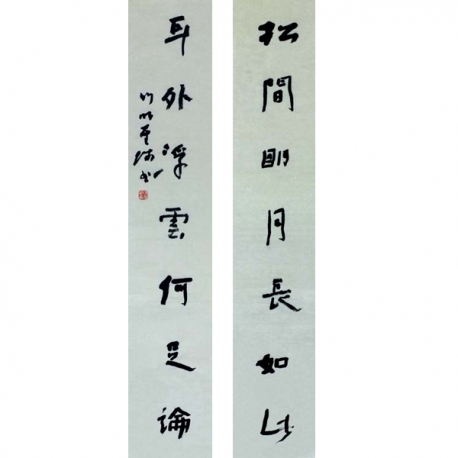 松間明月長如此
耳外浮雲何足論